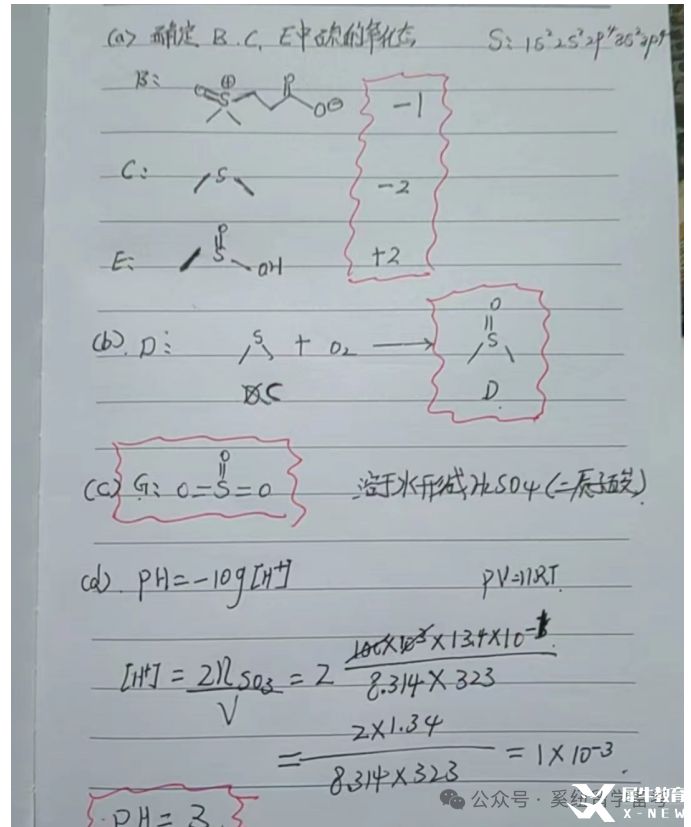 (a) 确定 B.C, E中硫的氧化态 S: 1s²2s²2p⁴3s²3p⁴
B: O=S⊕ O O⊖ -1
C: S -2
E: O S OH +2
(b). D: S + O₂ → O S
C D
(c) G: O=S=O O 溶于水形成H₂SO₄(二质子酸)
(d). PH=-log[H⁺] PV=nRT
[H⁺] = 2nSO₃/V = 2 ×13.4×10⁻¹/8.314×323
= 2×1.34/8.314×323 = 1×10⁻³.
PH=3
公众号
犀牛教育
X-NEW